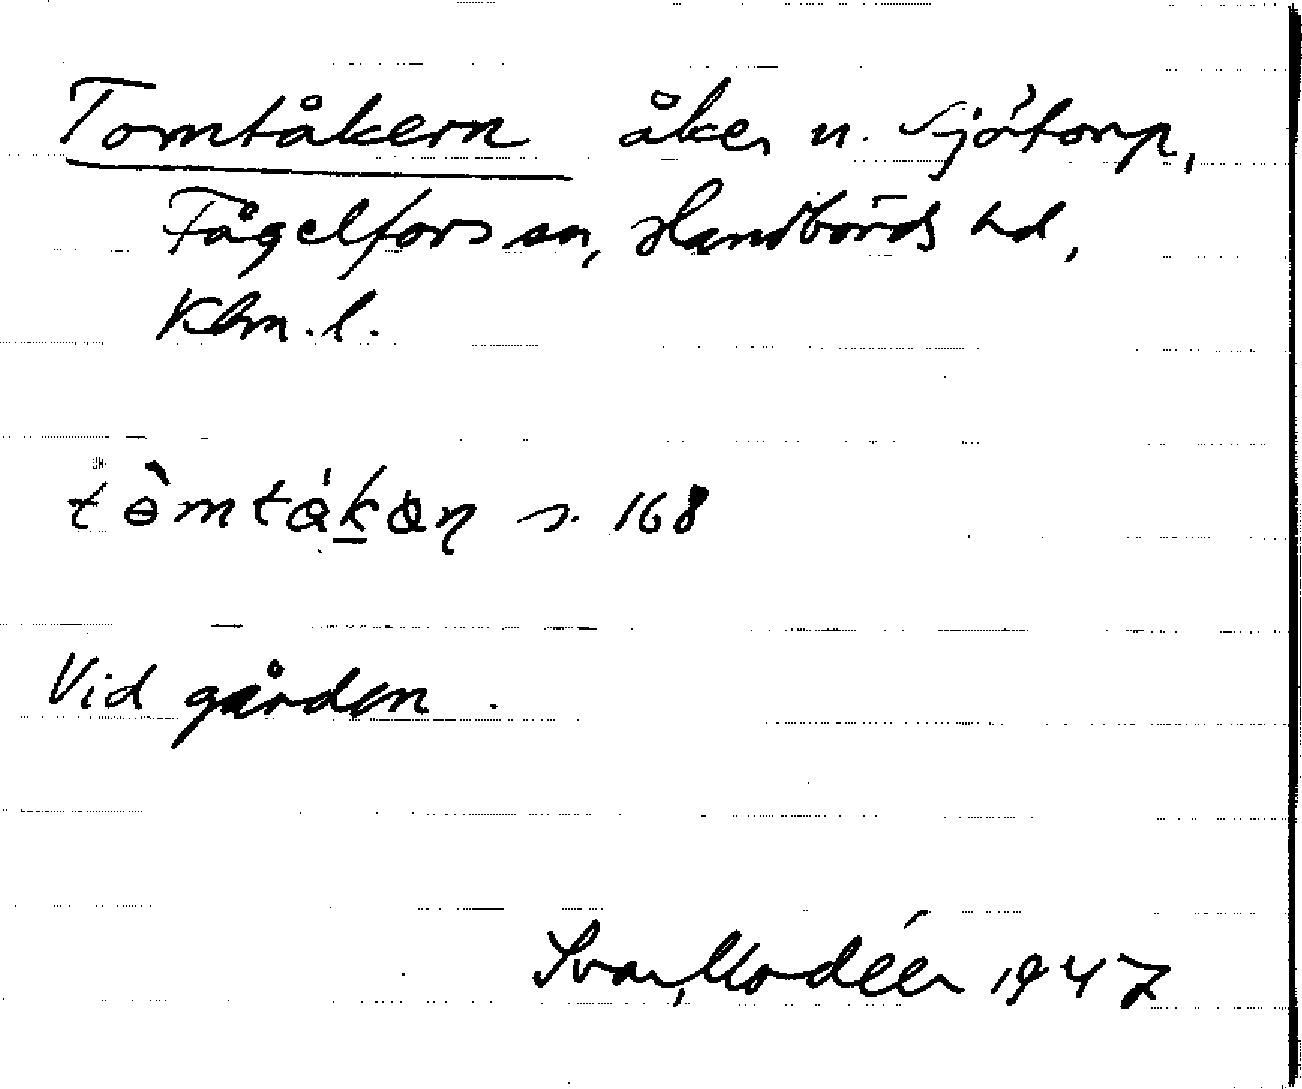 Tomtåkern åker u. Sjötorp,
Fågelfors sn, Handbörds hd,
Klm. l.
tòmtåkan s. 168
Vid gården.
Ivar Modéer 1947